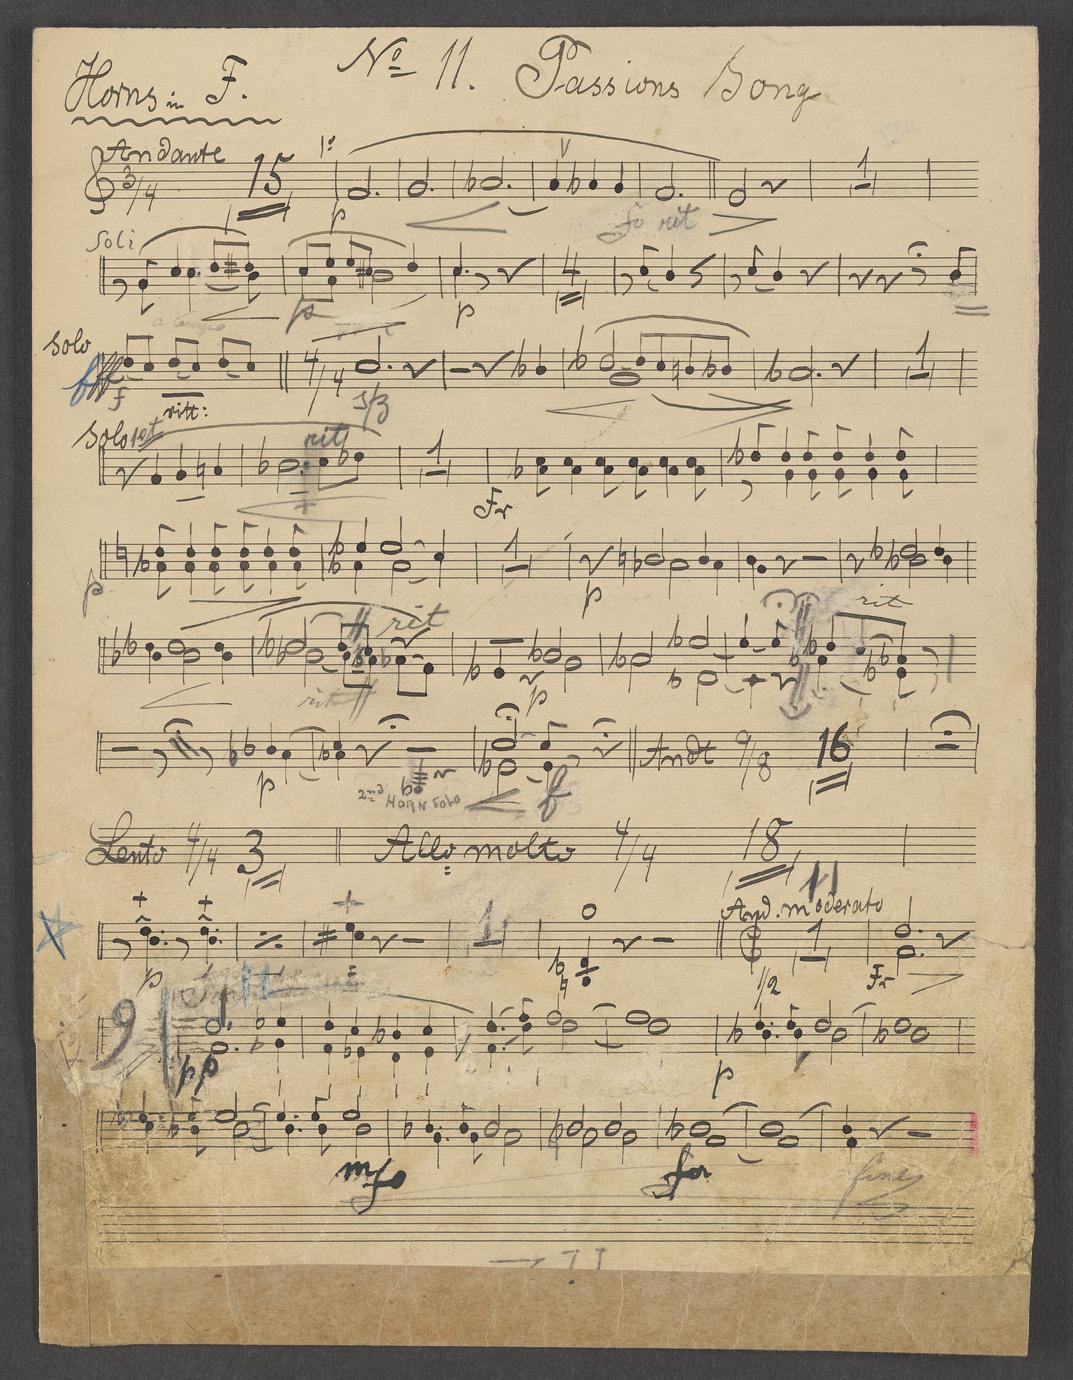 Horns in F.
No 11. Passions Song
Andante
3/4 15 1o
p rit
Soli
4
p p
a tempo
Solo
4/4 1
fff f ritt: sfz
Solo 1st rit
1
Fr
1
p p
rit rit
p rit
Andt 9/8 16
p 2nd HORN SOLO f
Lento 4/4 3 Allo molto 4/4 18
11
And. moderato
1 1
p 1/2 Fr
9
pp p
mfo for fine